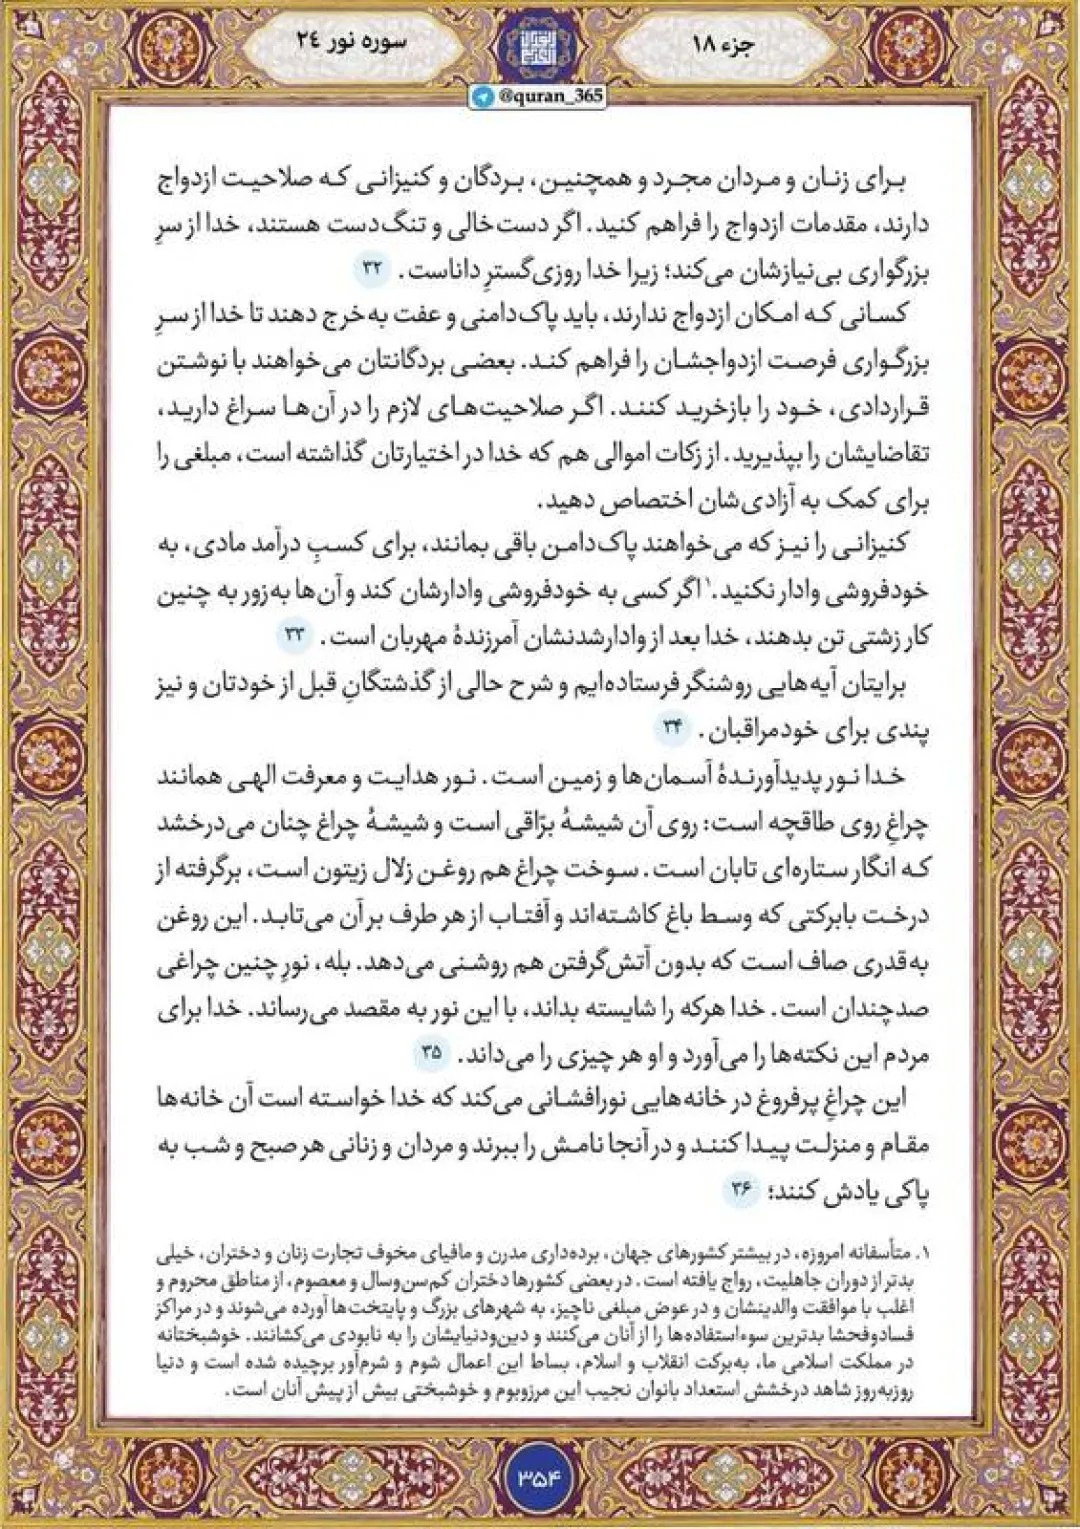 جزء ۱۸
سوره نور ۲۴
@quran_365
برای زنان و مردان مجرد و همچنین، بردگان و کنیزانی که صلاحیت ازدواج
دارند، مقدمات ازدواج را فراهم کنید. اگر دست‌خالی و تنگ‌دست هستند، خدا از سرِ
بزرگواری بی‌نیازشان می‌کند؛ زیرا خدا روزی‌گسترِ داناست. ۳۲
کسانی که امکان ازدواج ندارند، باید پاک‌دامنی و عفت به‌خرج دهند تا خدا از سرِ
بزرگواری فرصت ازدواجشان را فراهم کند. بعضی بردگانتان می‌خواهند با نوشتن
قراردادی، خود را بازخرید کنند. اگر صلاحیت‌های لازم را در آن‌ها سراغ دارید،
تقاضایشان را بپذیرید. از زکات اموالی هم که خدا در اختیارتان گذاشته است، مبلغی را
برای کمک به آزادی‌شان اختصاص دهید.
کنیزانی را نیز که می‌خواهند پاک‌دامن باقی بمانند، برای کسبِ درآمد مادی، به
خودفروشی وادار نکنید.۱ اگر کسی به خودفروشی وادارشان کند و آن‌ها به‌زور به چنین
کار زشتی تن بدهند، خدا بعد از وادارشدنشان آمرزندهٔ مهربان است. ۳۳
برایتان آیه‌هایی روشنگر فرستاده‌ایم و شرح حالی از گذشتگانِ قبل از خودتان و نیز
پندی برای خودمراقبان. ۳۴
خدا نور پدیدآورندهٔ آسمان‌ها و زمین است. نور هدایت و معرفت الهی همانند
چراغِ روی طاقچه است: روی آن شیشهٔ برّاقی است و شیشهٔ چراغ چنان می‌درخشد
که انگار ستاره‌ای تابان است. سوخت چراغ هم روغن زلال زیتون است، برگرفته از
درخت بابرکتی که وسط باغ کاشته‌اند و آفتاب از هر طرف بر آن می‌تابد. این روغن
به‌قدری صاف است که بدون آتش‌گرفتن هم روشنی می‌دهد. بله، نورِ چنین چراغی
صدچندان است. خدا هرکه را شایسته بداند، با این نور به مقصد می‌رساند. خدا برای
مردم این نکته‌ها را می‌آورد و او هر چیزی را می‌داند. ۳۵
این چراغِ پرفروغ در خانه‌هایی نورافشانی می‌کند که خدا خواسته است آن خانه‌ها
مقام و منزلت پیدا کنند و در آنجا نامش را ببرند و مردان و زنانی هر صبح و شب به
پاکی یادش کنند؛ ۳۶
۱. متأسفانه امروزه، در بیشتر کشورهای جهان، برده‌داری مدرن و مافیای مخوف تجارت زنان و دختران، خیلی
بدتر از دوران جاهلیت، رواج یافته است. در بعضی کشورها دختران کم‌سن‌وسال و معصوم، از مناطق محروم و
اغلب با موافقت والدینشان و در عوض مبلغی ناچیز، به شهرهای بزرگ و پایتخت‌ها آورده می‌شوند و در مراکز
فسادوفحشا بدترین سوءاستفاده‌ها را از آنان می‌کنند و دین‌ودنیایشان را به نابودی می‌کشانند. خوشبختانه
در مملکت اسلامی ما، به‌برکت انقلاب و اسلام، بساط این اعمال شوم و شرم‌آور برچیده شده است و دنیا
روزبه‌روز شاهد درخشش استعداد بانوان نجیب این مرزوبوم و خوشبختی بیش از پیش آنان است.
۳۵۴